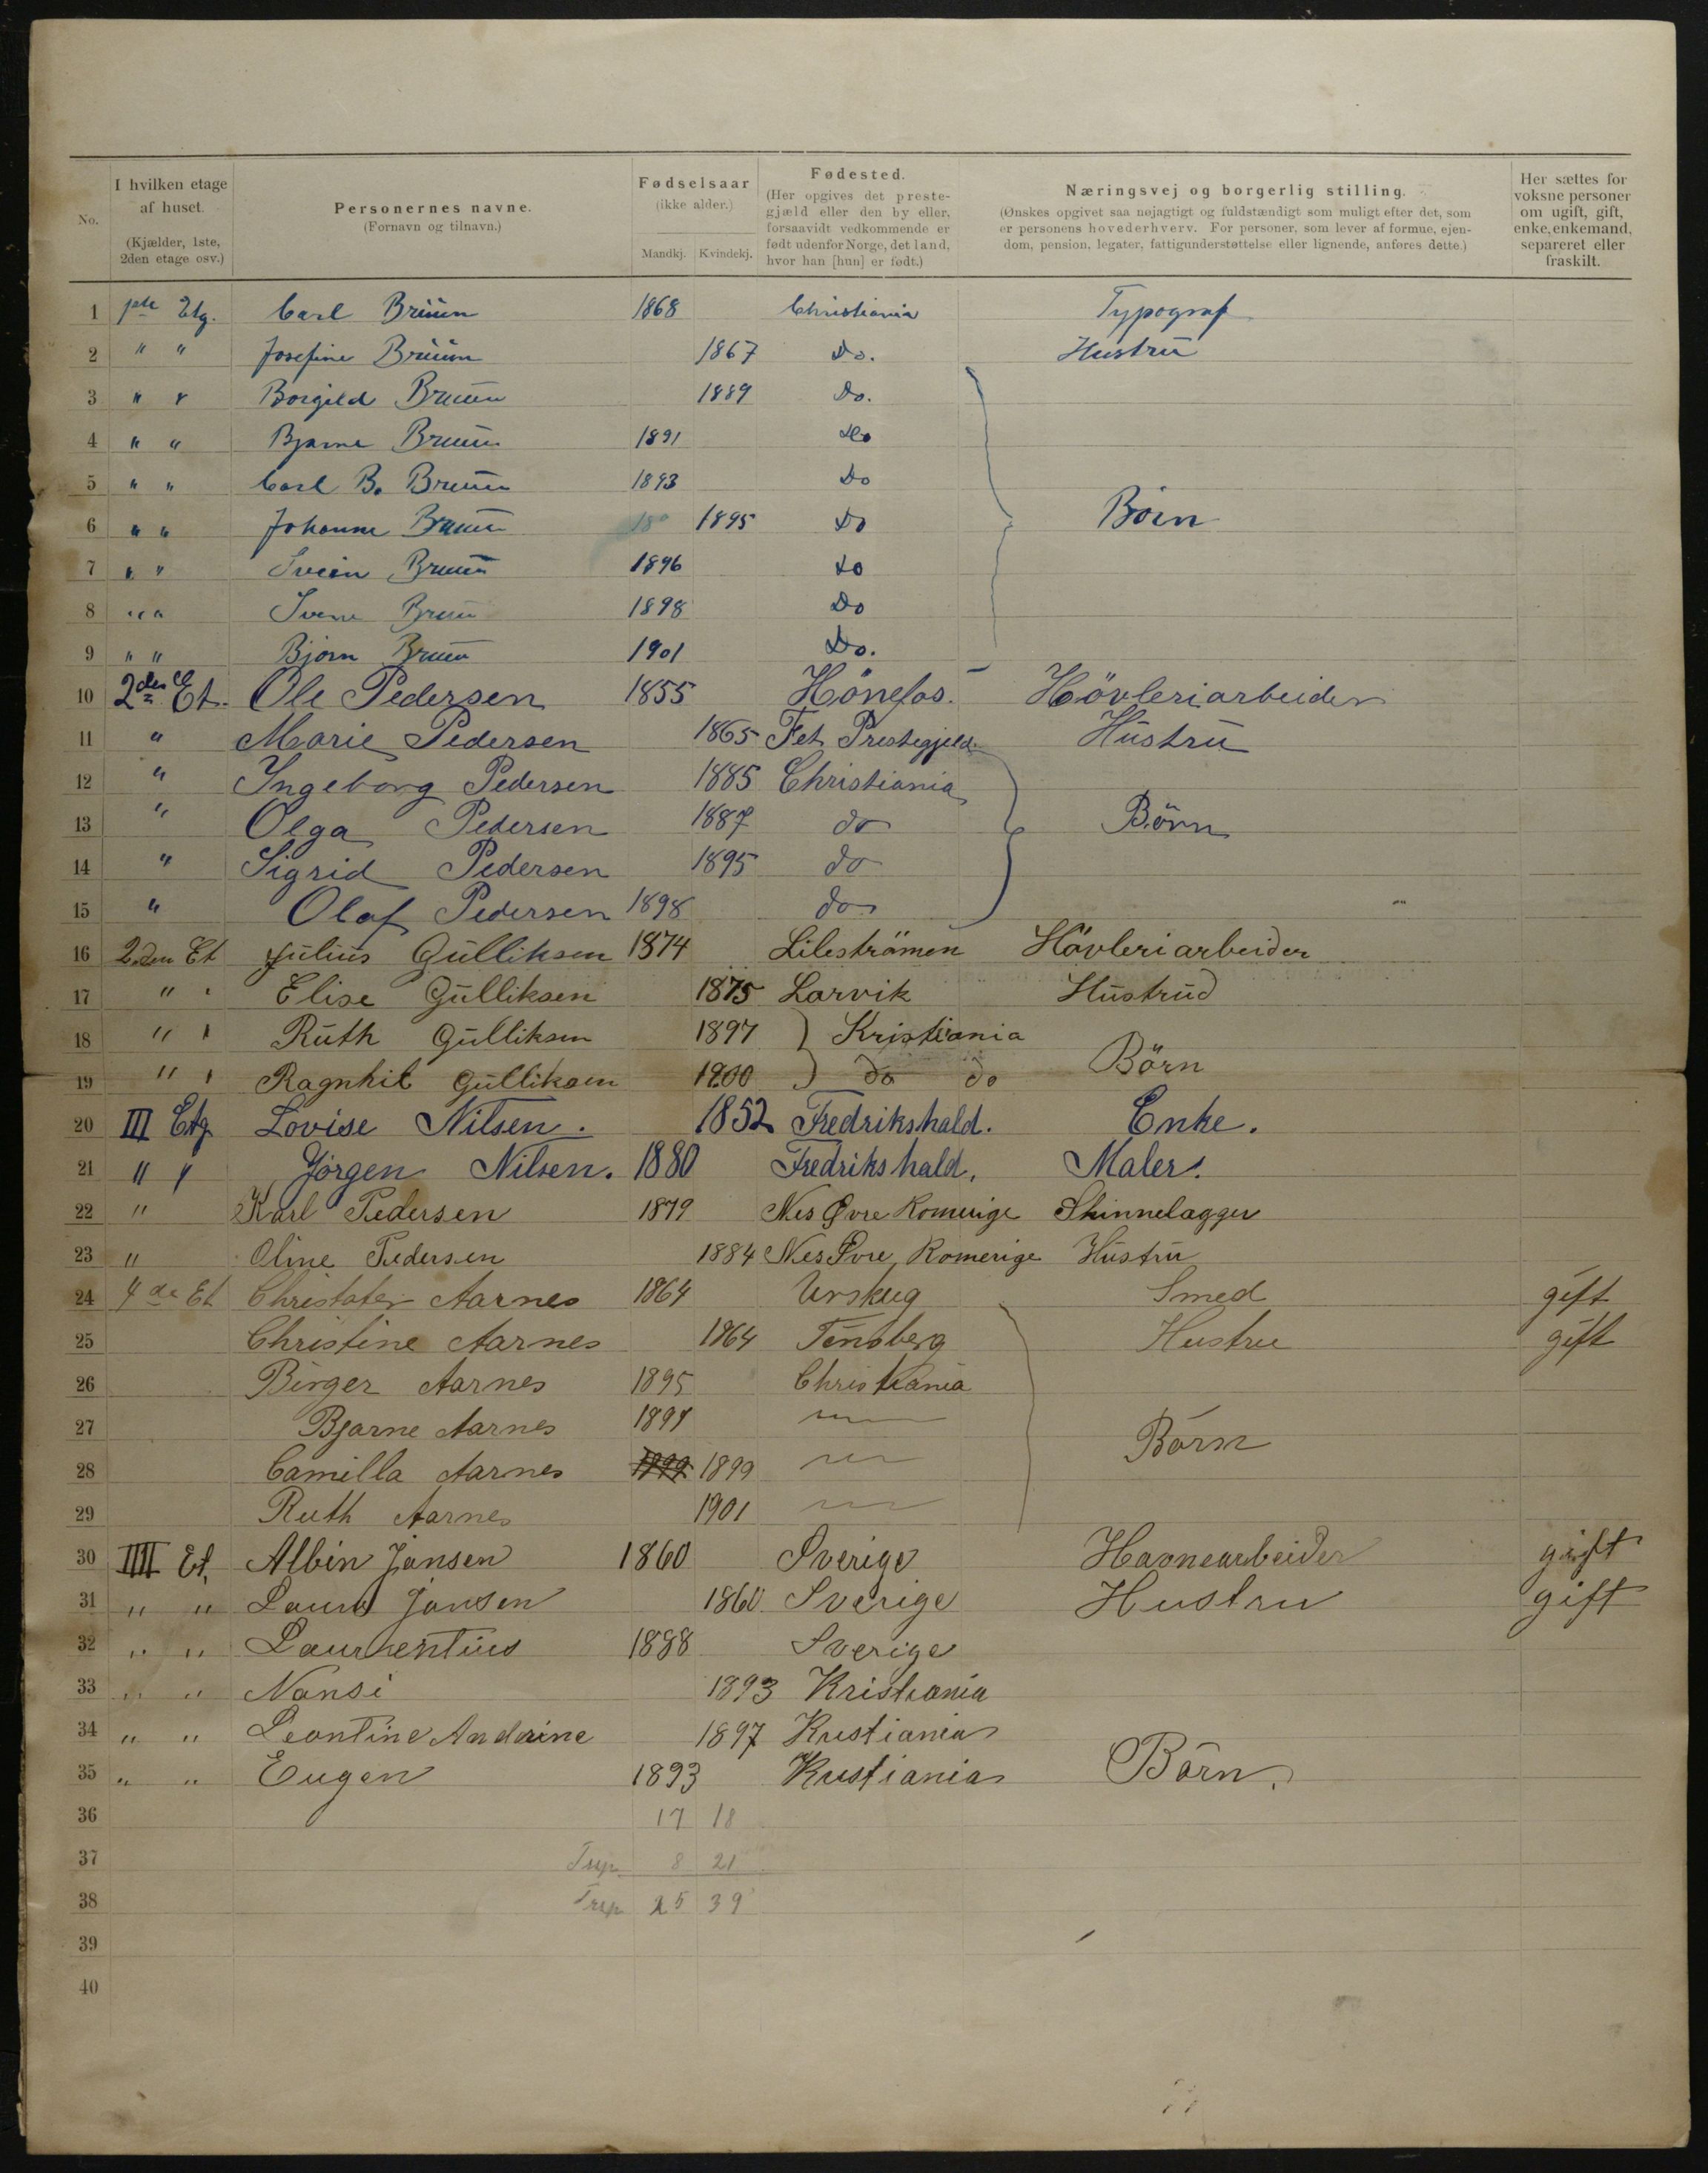 No.
I hvilken etage af huset. (Kjælder, 1ste, 2den etage osv.)
Personernes navne. (Fornavn og tilnavn.)
Fødselsaar (ikke alder.) Mandkj. Kvindekj.
Fødested. (Her opgives det prestegjæld eller den by eller, forsaavidt vedkommende er født udenfor Norge, det land, hvor han [hun] er født.)
Næringsvej og borgerlig stilling. (Ønskes opgivet saa nøjagtigt og fuldstændigt som muligt efter det, som er personens hovederhverv. For personer, som lever af formue, ejendom, pension, legater, fattigunderstøttelse eller lignende, anføres dette.)
Her sættes for voksne personer om ugift, gift, enke, enkemand, separeret eller fraskilt.
1 Etg. Carl Bruun 1868 Christiania Typograf
2 " " Josefine Bruun 1867 Do. Hustru
3 " " Borgild Bruun 1889 Do.
4 " " Bjarne Bruun 1891 Do
5 " " Carl B. Bruun 1893 Do
6 " " Johanne Bruun 1895 Do Börn
7 " " Svein Bruun 1896 Do
8 " " Bruun 1898 Do
9 " " Bjørn Bruun 1901 Do.
10 2den Et. Ole Pedersen 1855 Hönefos. Hövleriarbeider
11 " Marie Pedersen 1865 Fet Prestegjeld. Hustru
12 " Ingeborg Pedersen 1885 Christiania
13 " Olga Pedersen 1887 do Börn
14 " Sigrid Pedersen 1895 do
15 " Olaf Pedersen 1898 do
16 2den Et Julius Gulliksen 1874 Lileströmen Hövleriarbeider
17 " " Elise Gulliksen 1875 Larvik Hustrud
18 " " Ruth Gulliksen 1897 Kristiania
19 " " Ragnhil Gulliksen 1900 do do Börn
20 III Etg Lovise Nilsen. 1852 Fredrikshald. Enke.
21 " " Jörgen Nilsen. 1880 Fredrikshald. Maler.
22 " Karl Pedersen 1879 Nes Øvre Romerige Skinnelægger
23 " Oline Pedersen 1884 Nes Øvre Romerige Hustru
24 4de Et Christofer Aarnes 1864 Urskug Smed gift
25 Christine Aarnes 1864 Tönsberg Hustru gift
26 Birger Aarnes 1895 Christiania
27 Bjarne Aarnes 1897 Börn
28 Camilla Aarnes 1899 1899
29 Ruth Aarnes 1901
30 IIII Et. Albin Jansen 1860 Sverige Havnearbeider gift
31 " " Laura Jansen 1860 Sverige Hustru gift
32 " " Laurentius 1888 Sverige
33 " " Nansi 1893 Kristiania
34 " " Leontine Andrine 1897 Kristiania
35 " " Eugen 1893 Kristiania Börn.
36 17 18
37 8 21
38 25 39
39
40